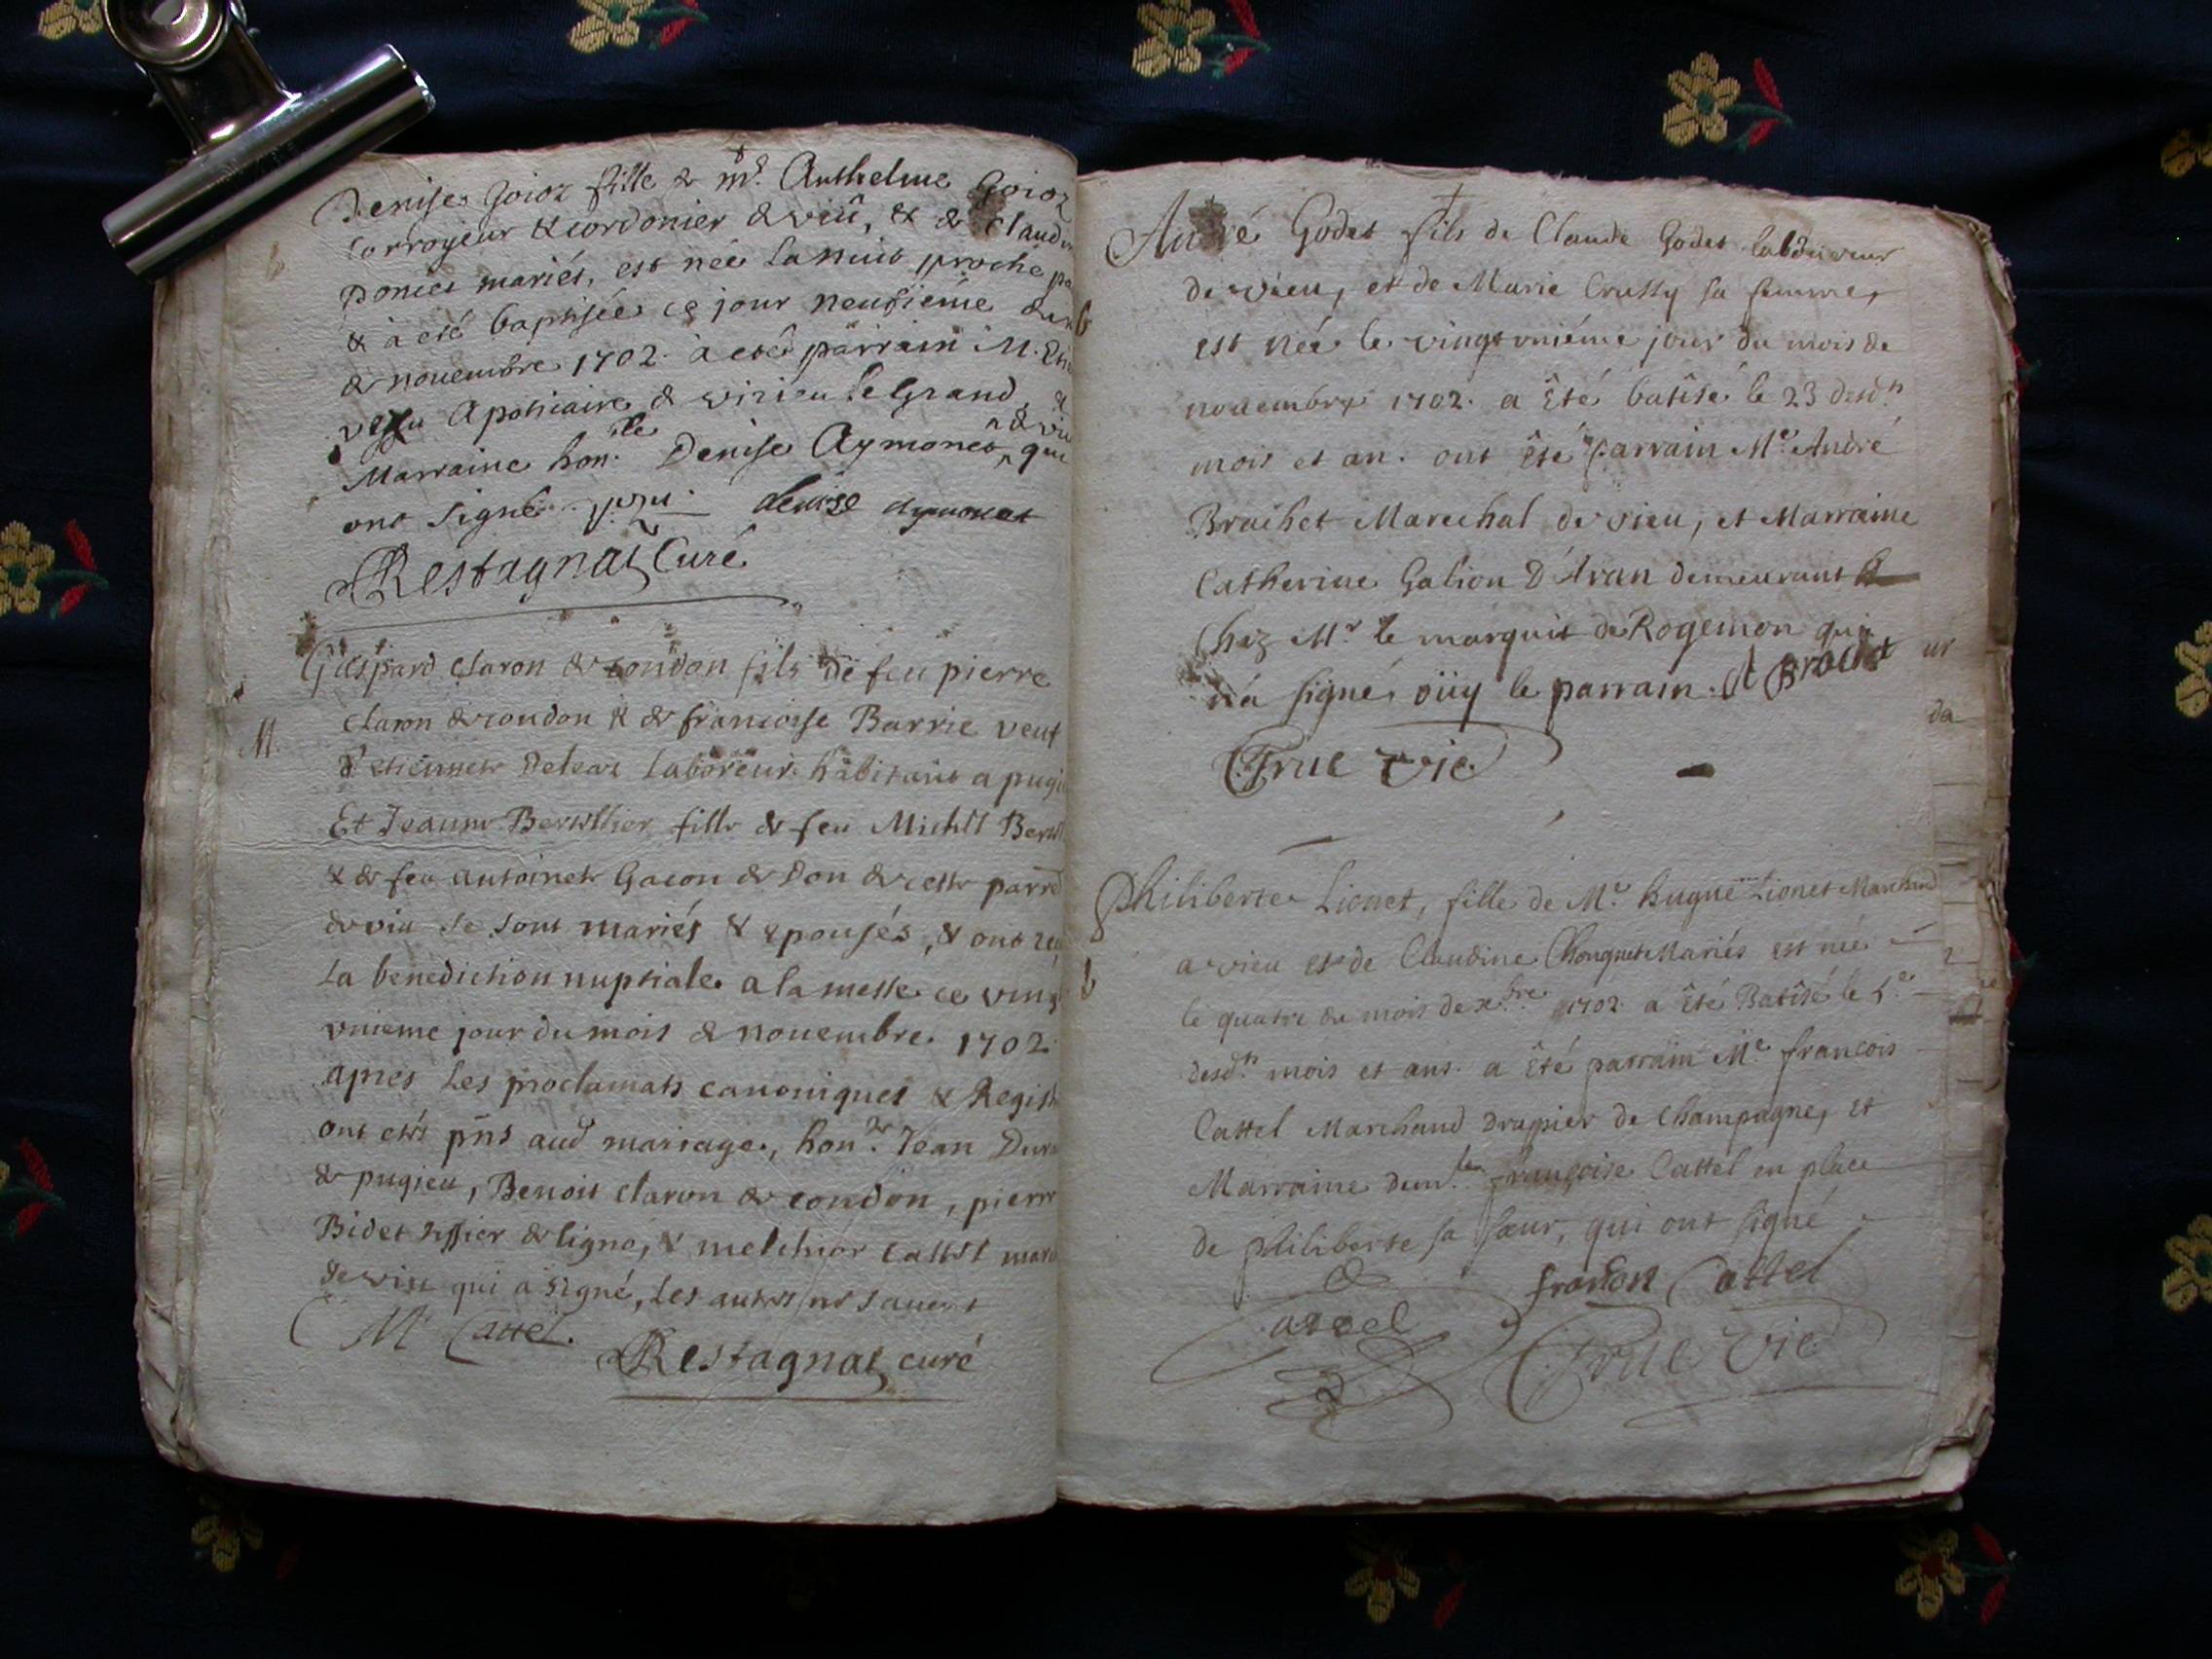 Denise Goioz fille & mr. Anthelme Goioz
Corroyeur & cordonier & viû, & & Claudi
Poncet mariés, est née la nuit proche pa
b
& à eté baptisée ce jour neufiéme du
& nouembre 1702. à eté parrain M.
Apoticaire & virieu le Grand, &
Marraine hon.ble Denise Aymonet, qui
& viu
ont signé. denise aymonet
Restagnat Curé
Gaspard Claron & condon fils de feu pierre
M.
Claron & condon & & francoise Barrie veuf
d'etiennete Deleaz laboreur habitant a pugi
Et Jeanne Berthllier fille & feu Michel
& & feu antoinete Gacon & Don & cette parr
& viu se sont mariés & epousés, & ont
La benediction nuptiale a la messe ce ving
vnieme jour du mois & nouembre 1702.
apres les proclamats canoniques & Regist
ont etés pnts aud mariage, hon.le Jean
& pugieu, Benoit claron & condon, pierre
Bidet & ligne, & melchior Cattel marc
de viu qui a signé, Les autres ne sauent
M Cattel.
Restagnat curé
André Godet fils de Claude Godet laboureur
de vieu, et de Marie Crussy sa femme,
b
est née le vingt vniéme jour du mois de
nouembre 1702. a êté batisé le 23 desd.ts
mois et an. ont êté parrain Me. André
Brachet Marechal de vieu, et Marraine
Catherine Galion D'Aran demeurant
Chez Mr le marquis de Rogemon qui
n'a signé, oüy le parrain. A Brachet
True vie
Philiberte Lionet, fille de Mr. hugue Lionet Marchand
a vieu et de Claudine Chouquet Mariés est née
b
le quatre du mois de xbre. 1702 a êté Batisé le 5e
desd.ts mois et ans. a êté parrain Me. francois
Cattel Marchand drapier de Champagne, et
Marraine dem.lle françoise Cattel en place
de philiberte sa sœur, qui ont signé
fronson Cattel
Cattel
True Vie